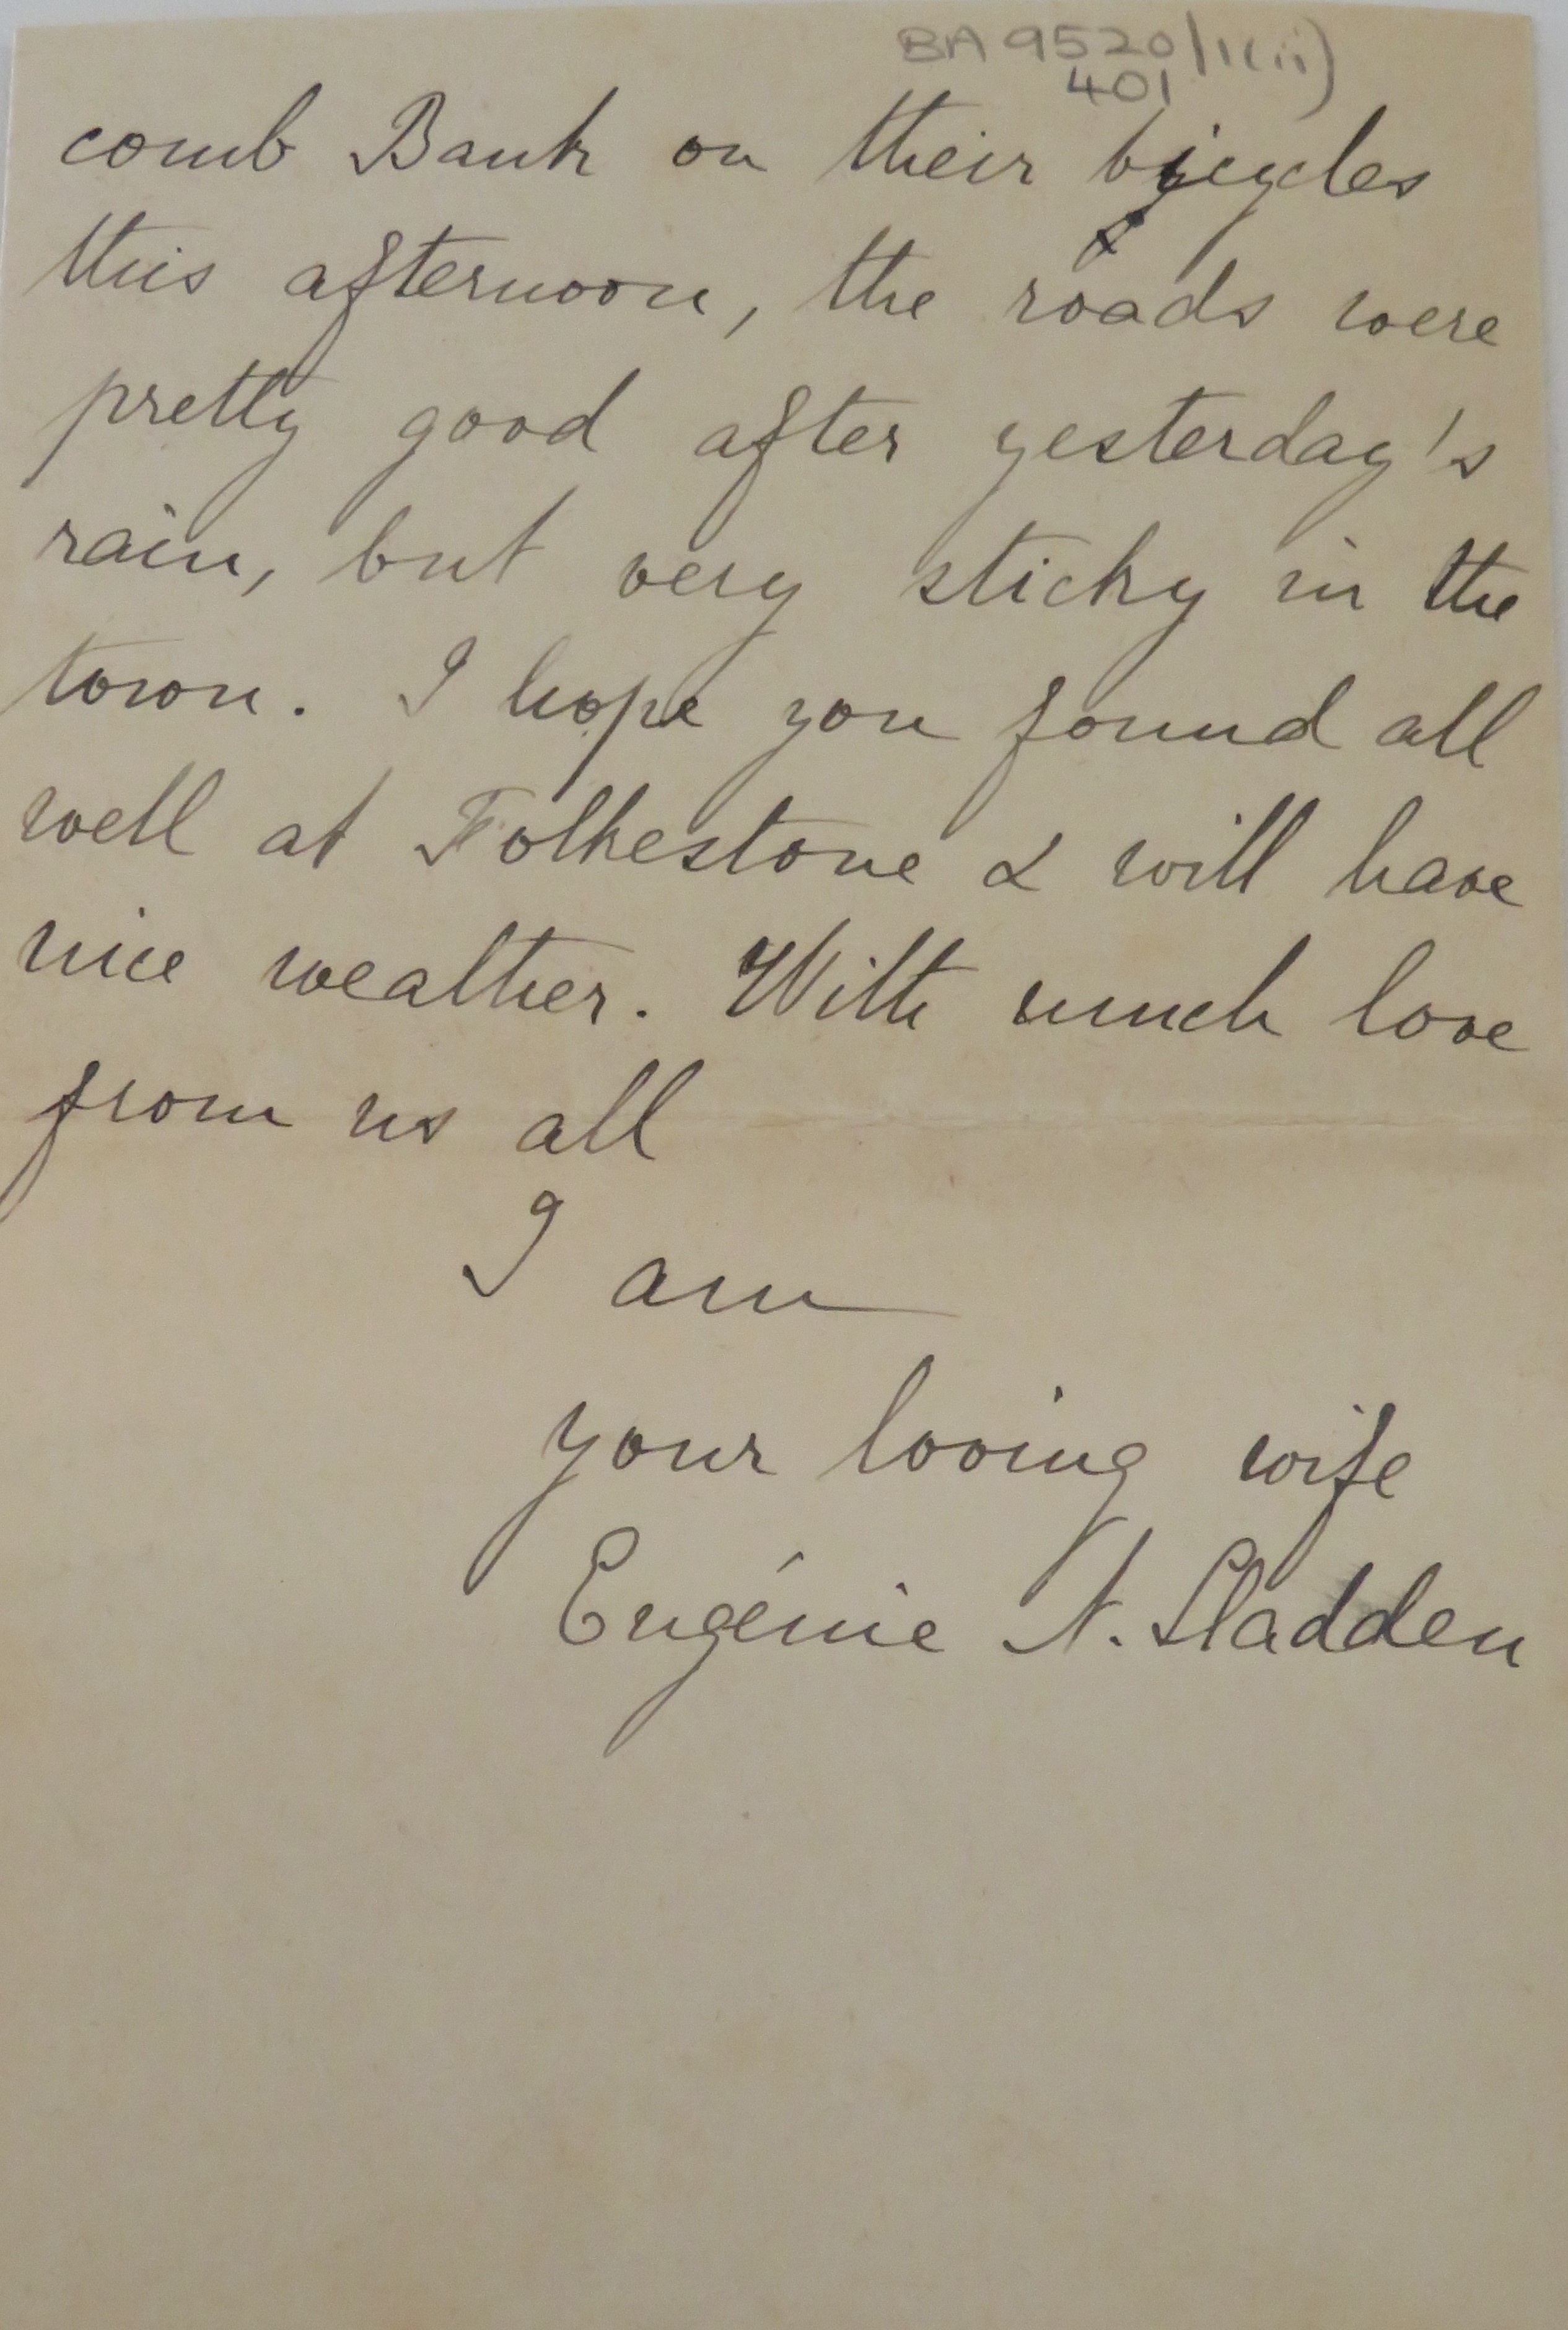 BA 9520/1(ii)
401
comb Bank on their bicycles
this afternoon, the roads were
pretty good after yesterday's
rain, but very sticky in the
town. I hope you found all
well at Folkestone & will have
nice weather. With much love
from us all
I am
your loving wife
Eugénie N. Sladden